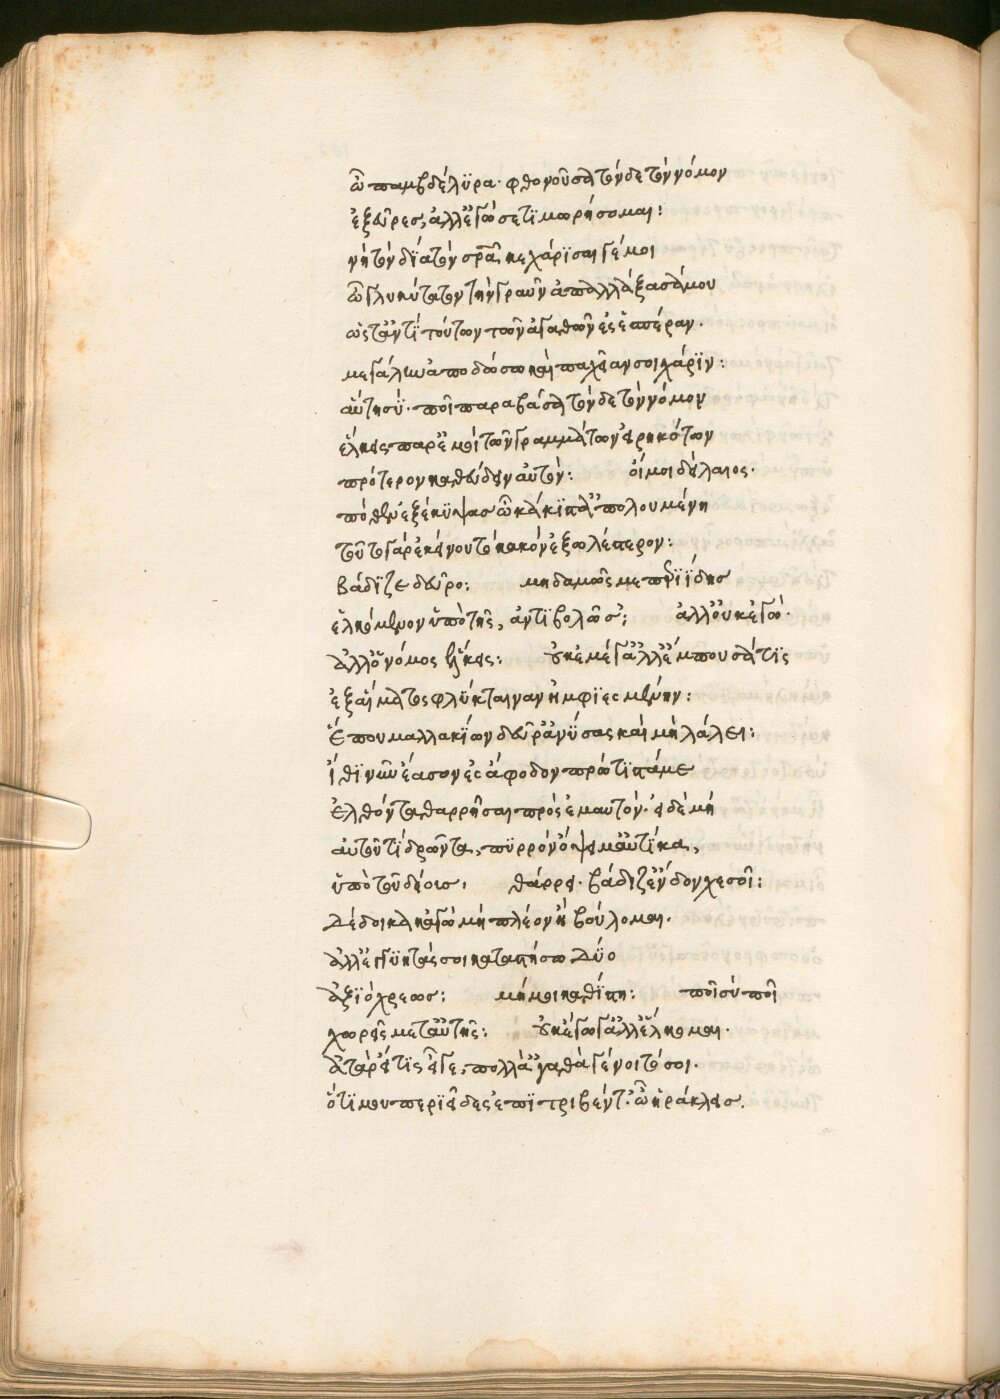 ὦ παμβδέλυρα· φθονοῦσα τόνδε τὸν νόμον
ἐξεῦρες, ἀλλ' ἐγώ σε τιμωρήσομαι:
νὴ τὸν δία τὸν σρᾶ, κεχάρισαι γέ μοι
ὦ γλυκύτατον τὴν γραῦν ἀπαλλάξασά μου
ὥς τ' ἀντὶ τούτων τῶν ἀγαθῶν ἐς ἑσπέραν·
μεγάλην ἀποδώσω καὶ παχεῖαν σοι χάριν:
αὕτη σύ· ποῖ παραβᾶσα τόνδε τὸν νόμον
ἕλκεις παρ' ἐμοὶ τῶν γραμμάτων εἰρηκότων
πρότερον καθεύδειν αὐτόν: οἴμοι δείλαιος·
πόθεν ἐξέκυψας ὦ κάκιστ' ἀπολουμένη
τοῦτο γὰρ ἐκείνου τὸ κακὸν ἐξωλέστερον:
βάδιζε δεῦρο: μηδαμῶς με περιίδης
ἑλκόμενον ὑπὸ τῆς, ἀντιβολῶ σ': ἀλλ' οὐκ ἐγώ·
ἀλλ' ὁ νόμος ἕλκει σ: οὐκ ἐμέ γ' ἀλλ' ἔμπουσά τις
ἐξ αἵματος φλύκταιναν ἠμφιεσμένην:
ἕπου μαλλακίων δεῦρ' ἀνύσας καὶ μὴ λάλει:
ἴθι νῦν ἔασον ἐς ἄφοδον πρώτιστά με
ἐλθόντα θαρρῆσαι πρὸς ἐμαυτόν· εἰ δὲ μή
αὐτοῦ τί δρῶντα, πυρρὸν ὄψει μ' αὐτίκα,
ὑπὸ τοῦ δέους, θάρρει· βάδιζ' ἔνδον χεσοῖ:
δέδοικα κἀγὼ μὴ πλέον ἢ βούλομαι.
ἀλλ' ἐγγυητάς σοι καταστήσω δύο
ἀξιόχρεως: μή μοι καθίστη: ποῖ σὺ ποῖ
χωρεῖς μετ' αὐτῆς: οὐκ ἔγωγ' ἀλλ' ἕλκομαι·
ἀτὰρ εἴ τις εἶ γε, πολλά γ' ἀγαθὰ γένοιτό σοι.
ὅτι μ' οὐ περιεῖδες ἐπιτριβέντ'. ὦ ἡράκλεις.